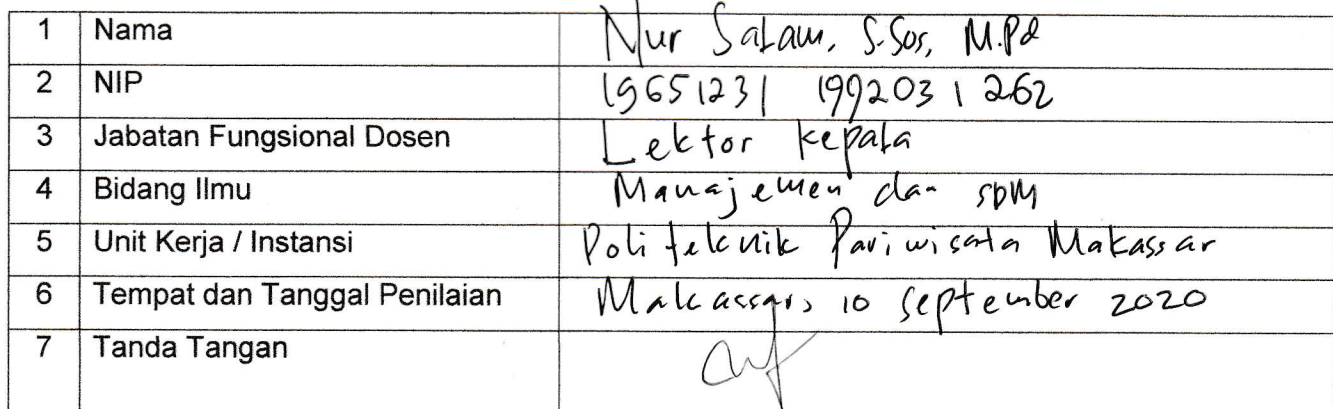 1 Nama Nur Salam, S.Sos, M.Pd
2 NIP 19651231 199203 1 262
3 Jabatan Fungsional Dosen Lektor Kepala
4 Bidang Ilmu Manajemen dan SDM
5 Unit Kerja / Instansi Politeknik Pariwisata Makassar
6 Tempat dan Tanggal Penilaian Makassar, 10 September 2020
7 Tanda Tangan